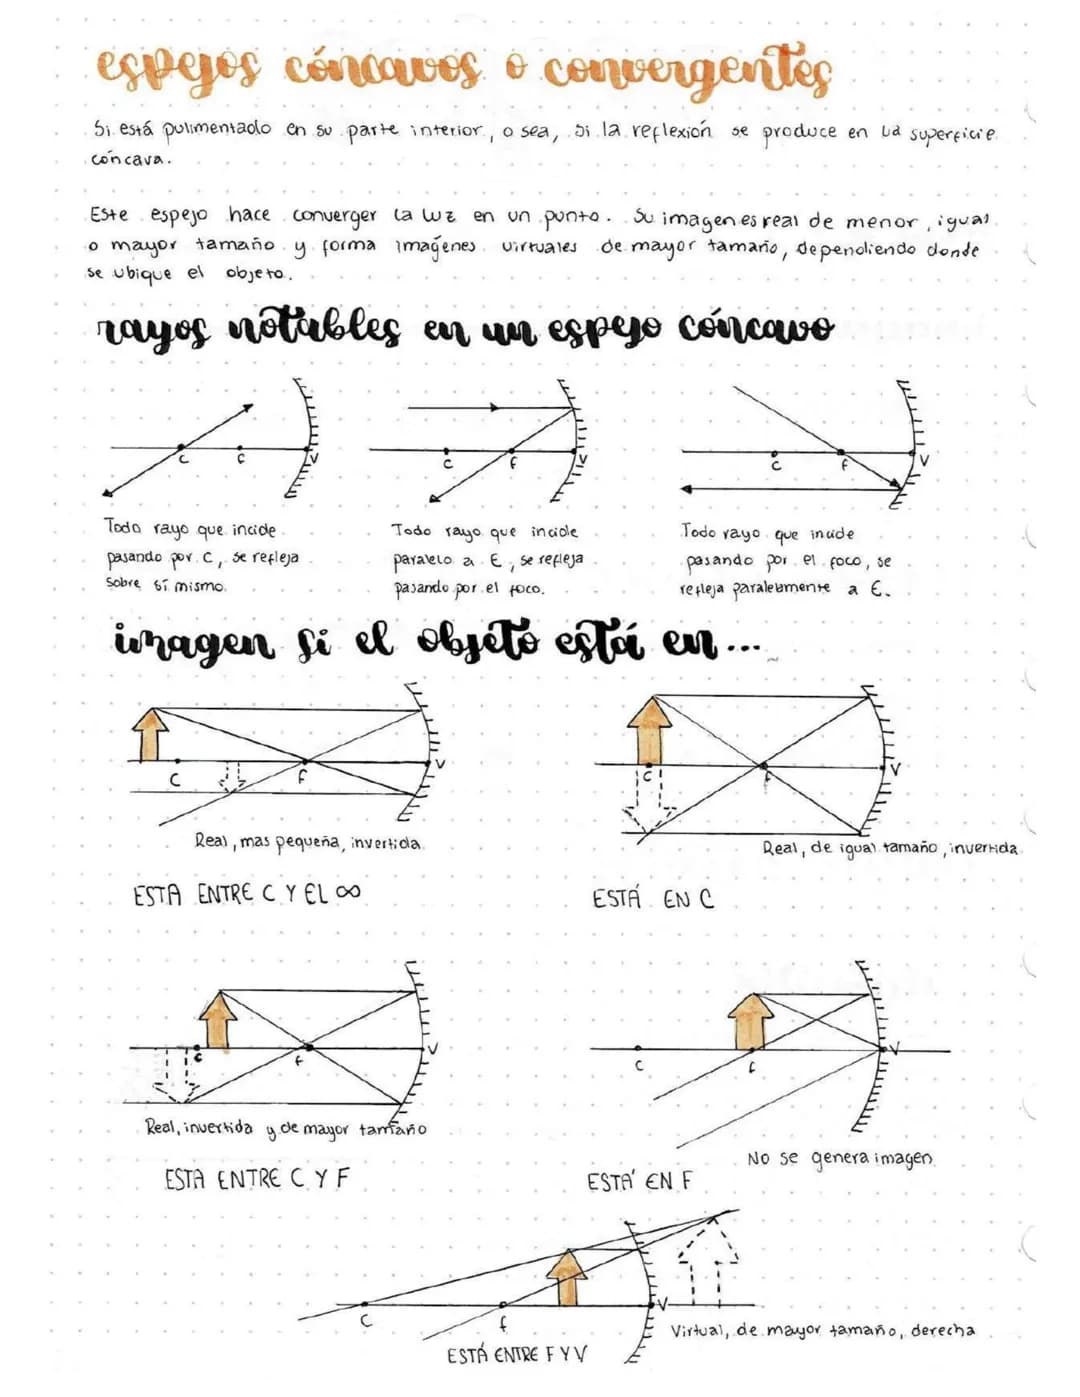 espejos cóncavos o convergentes
Si está pulimentado en su parte interior, o sea, si la reflexión se produce en la superficie
cóncava.
Este espejo hace converger la luz en un punto. Su imagen es real de menor, igual
o mayor tamaño y forma imágenes virtuales de mayor tamaño, dependiendo donde
se ubique el objeto.
rayos notables en un espejo cóncavo
C F V
C F V
C F V
Todo rayo que incide
pasando por C, se refleja
sobre sí mismo.
Todo rayo que incide
paralelo a E, se refleja
pasando por el foco.
Todo rayo que incide
pasando por el foco, se
refleja paralelamente a E.
imagen si el objeto está en...
C F V
Real, mas pequeña, invertida
ESTA ENTRE C Y EL ∞
C F V
Real, de igual tamaño, invertida
ESTÁ EN C
C F V
Real, invertida y de mayor tamaño
ESTA ENTRE C Y F
C F V
No se genera imagen
ESTÁ EN F
C F V
Virtual, de mayor tamaño, derecha
ESTÁ ENTRE F Y V